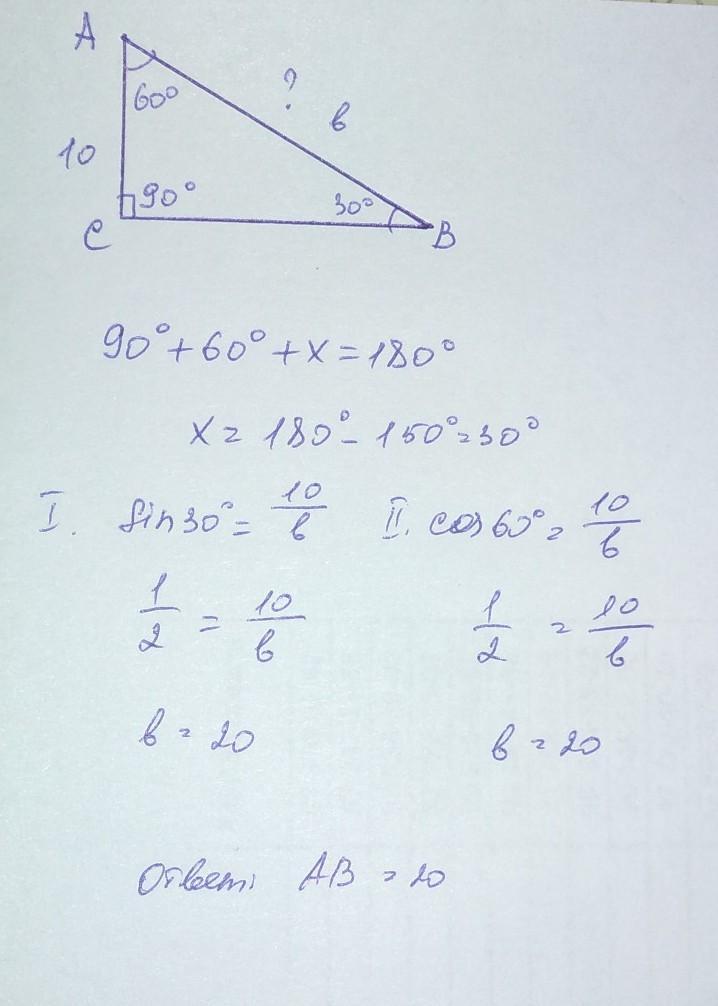 A
60°
?
в
10
90°
30°
C
B
90°+60°+x=180°
x=180°-150°=30°
I. sin30°=10/в II. cos60°=10/в
1/2=10/в 1/2=10/в
в=20 в=20
Ответ: AB=20